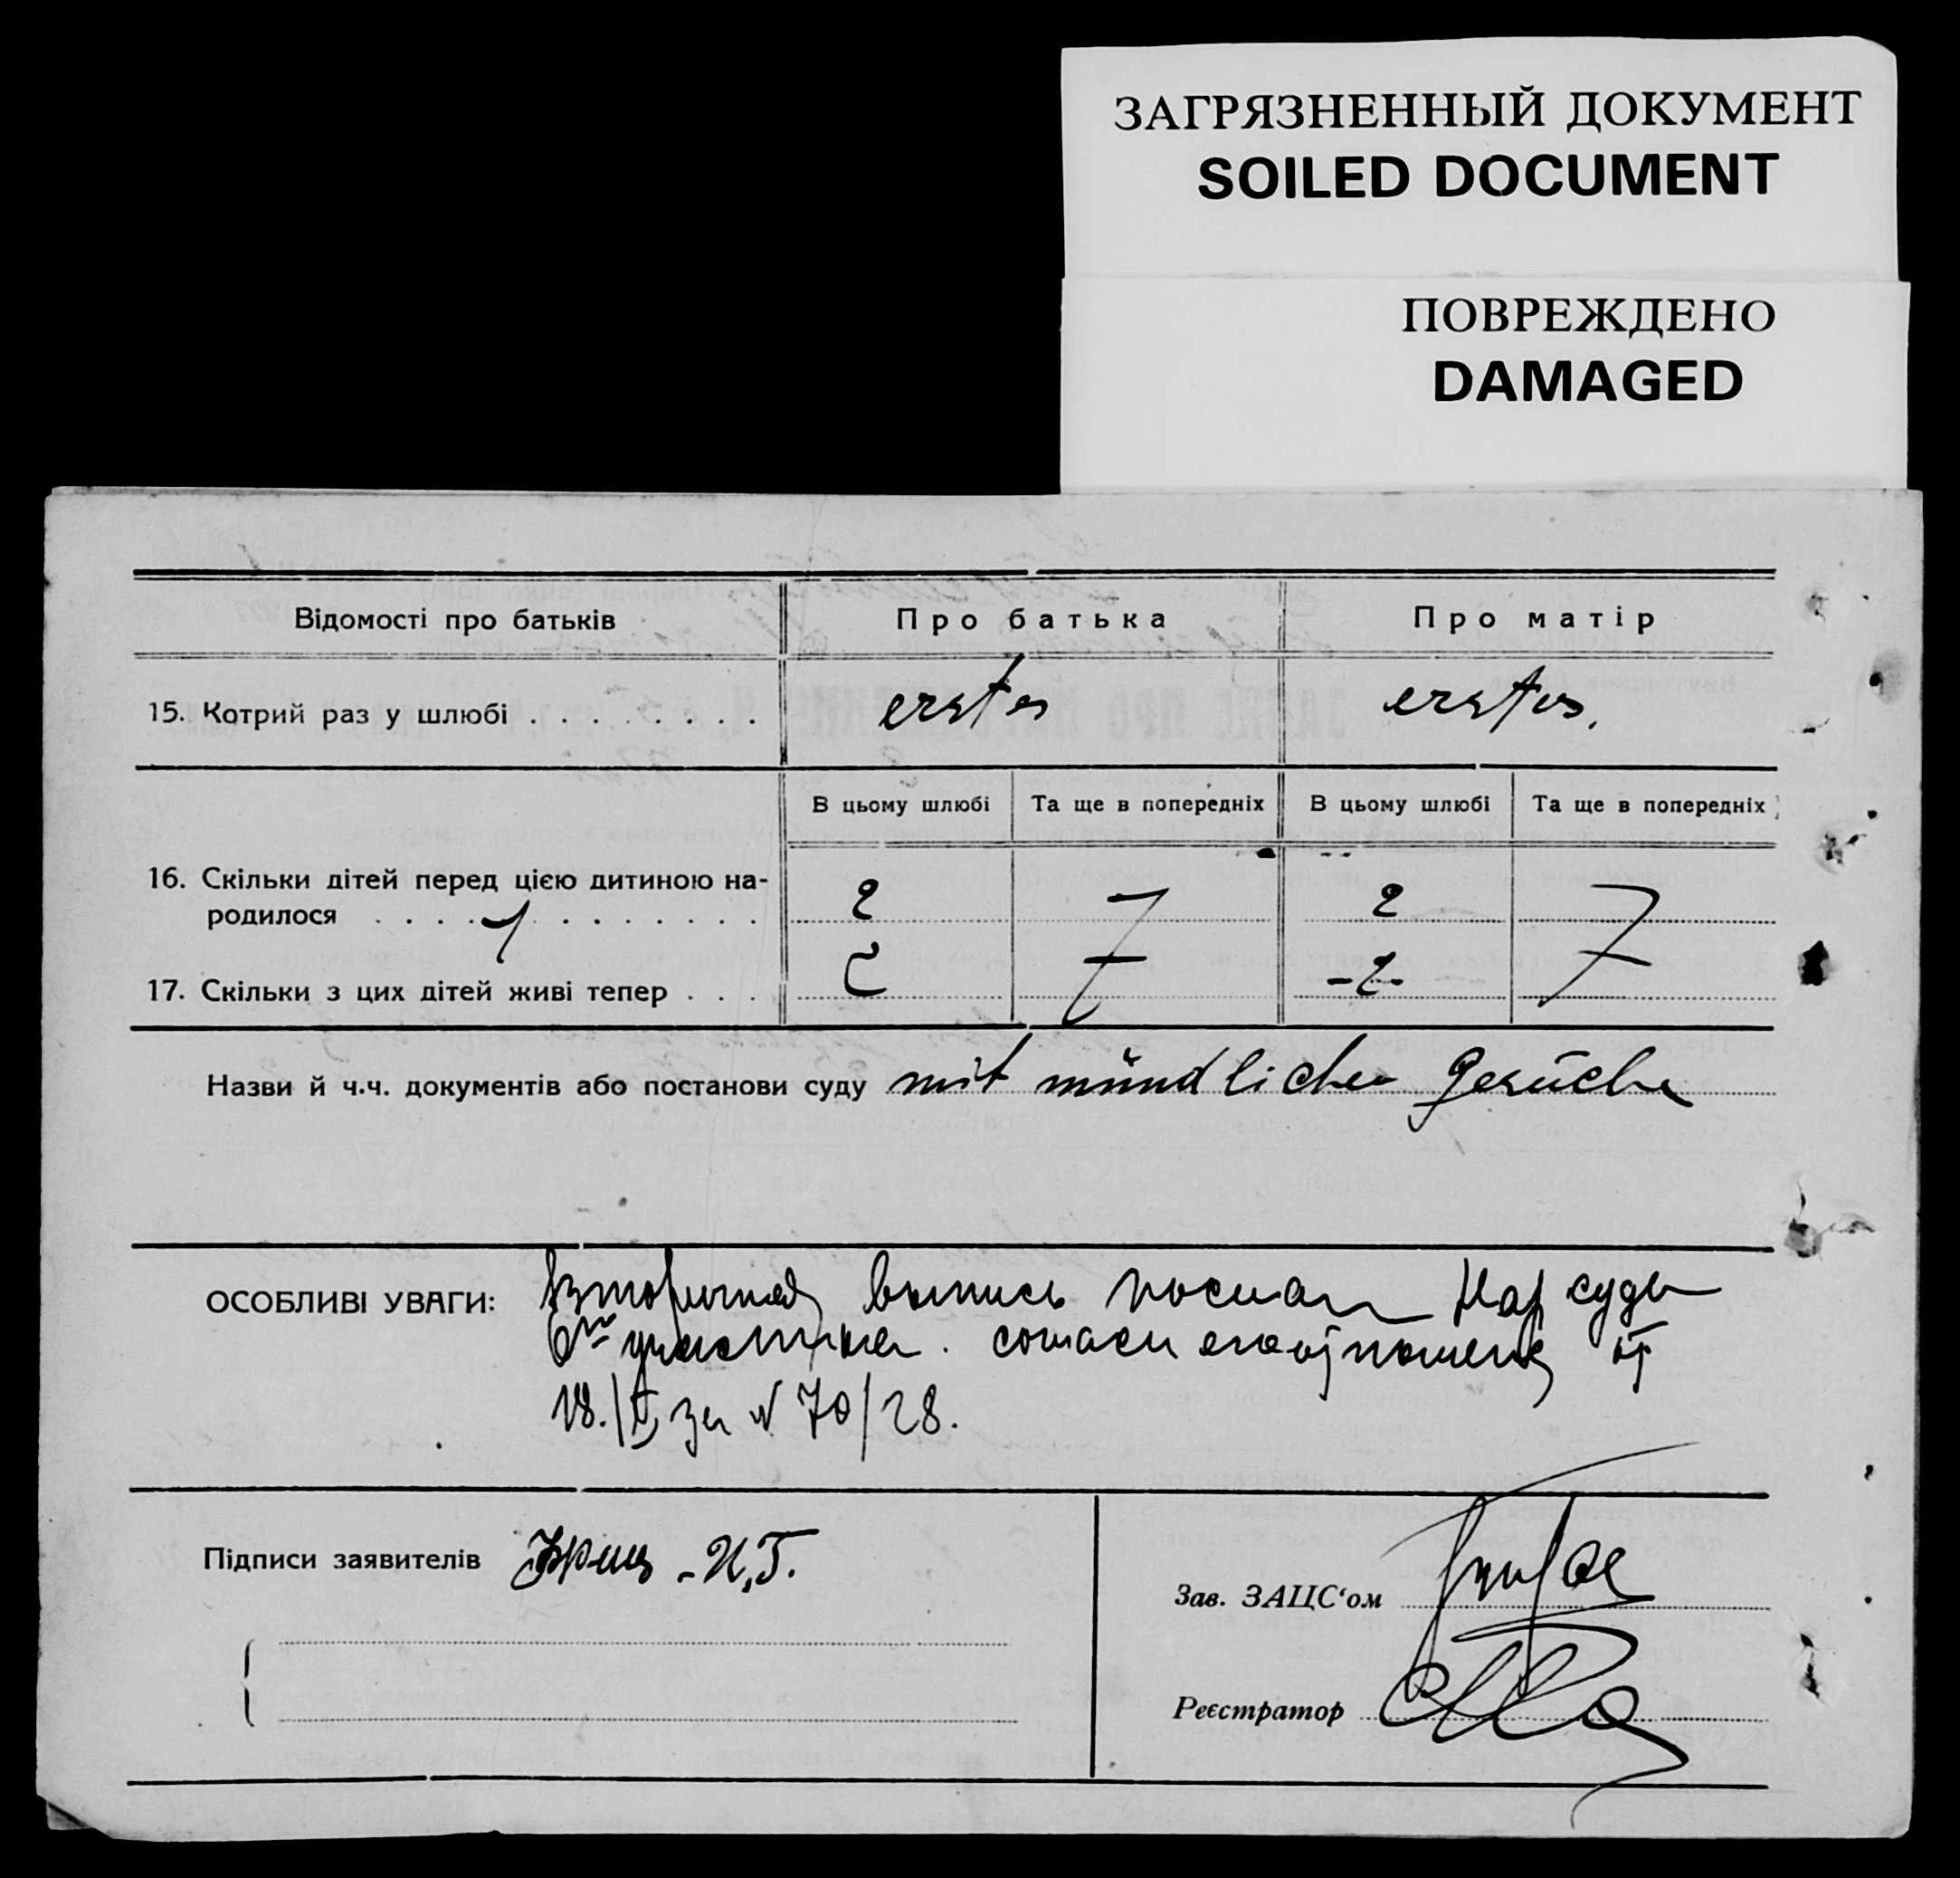 ЗАГРЯЗНЕННЫЙ ДОКУМЕНТ
SOILED DOCUMENT
ПОВРЕЖДЕНО
DAMAGED
Відомості про батьків Про батька Про матір
15. Котрий раз у шлюбі . . . . . . . . . erstes erstes.
В цьому шлюбі Та ще в попередніх В цьому шлюбі Та ще в попередніх
16. Скільки дітей перед цією дитиною на-
родилося . . . . . . . . . . . . 2 2
17. Скільки з цих дітей живі тепер . . . -2-
Назви й ч.ч. документів або постанови суду mit mündlicher Gesuche
ОСОБЛИВІ УВАГИ: выпись Нар суды
участка.
18./ за № 70/28.
Підписи заявителів - И,Г.
Зав. ЗАЦС‘ом
Реєстратор